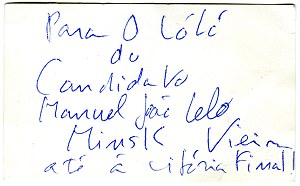 Para O Lóló
do
Candidato
Manuel João
Minsk Vieira
até á vitória Final!